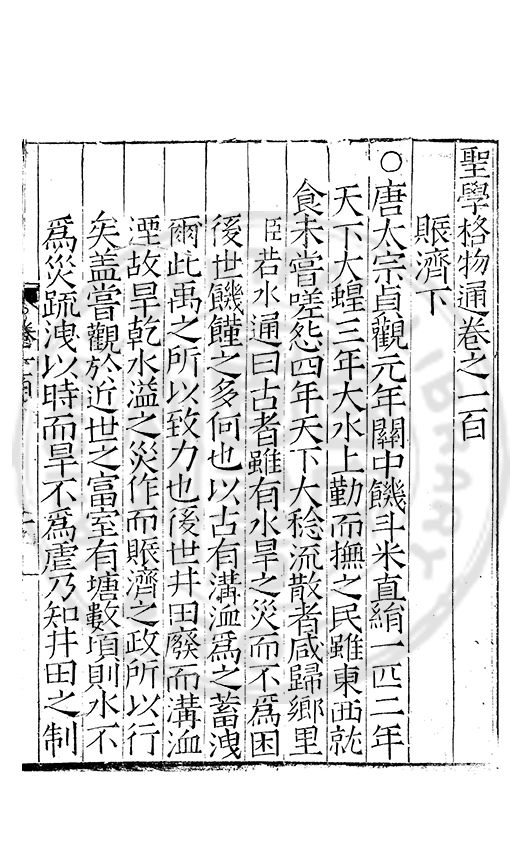 聖學格物通卷之一百
賑濟下
○唐太宗貞觀元年關中饑斗米直絹一匹二年
天下大蝗三年大水上勤而撫之民雖東西就
食未嘗嗟怨四年天下大稔流散者咸歸鄉里
臣若水通曰古者雖有水旱之災而不爲困
後世饑饉之多何也以古有溝洫爲之蓄洩
爾此禹之所以致力也後世井田廢而溝洫
湮故旱乾水溢之災作而賑濟之政所以行
矣蓋嘗觀於近世之富室有塘數頃則水不
爲災疏洩以時而旱不爲虐乃知井田之制
卷一百
一
LIBRARY